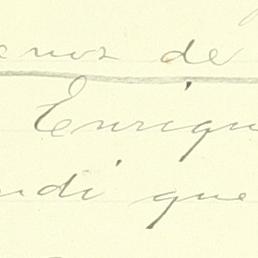 enor de
Enriqu
ndi que